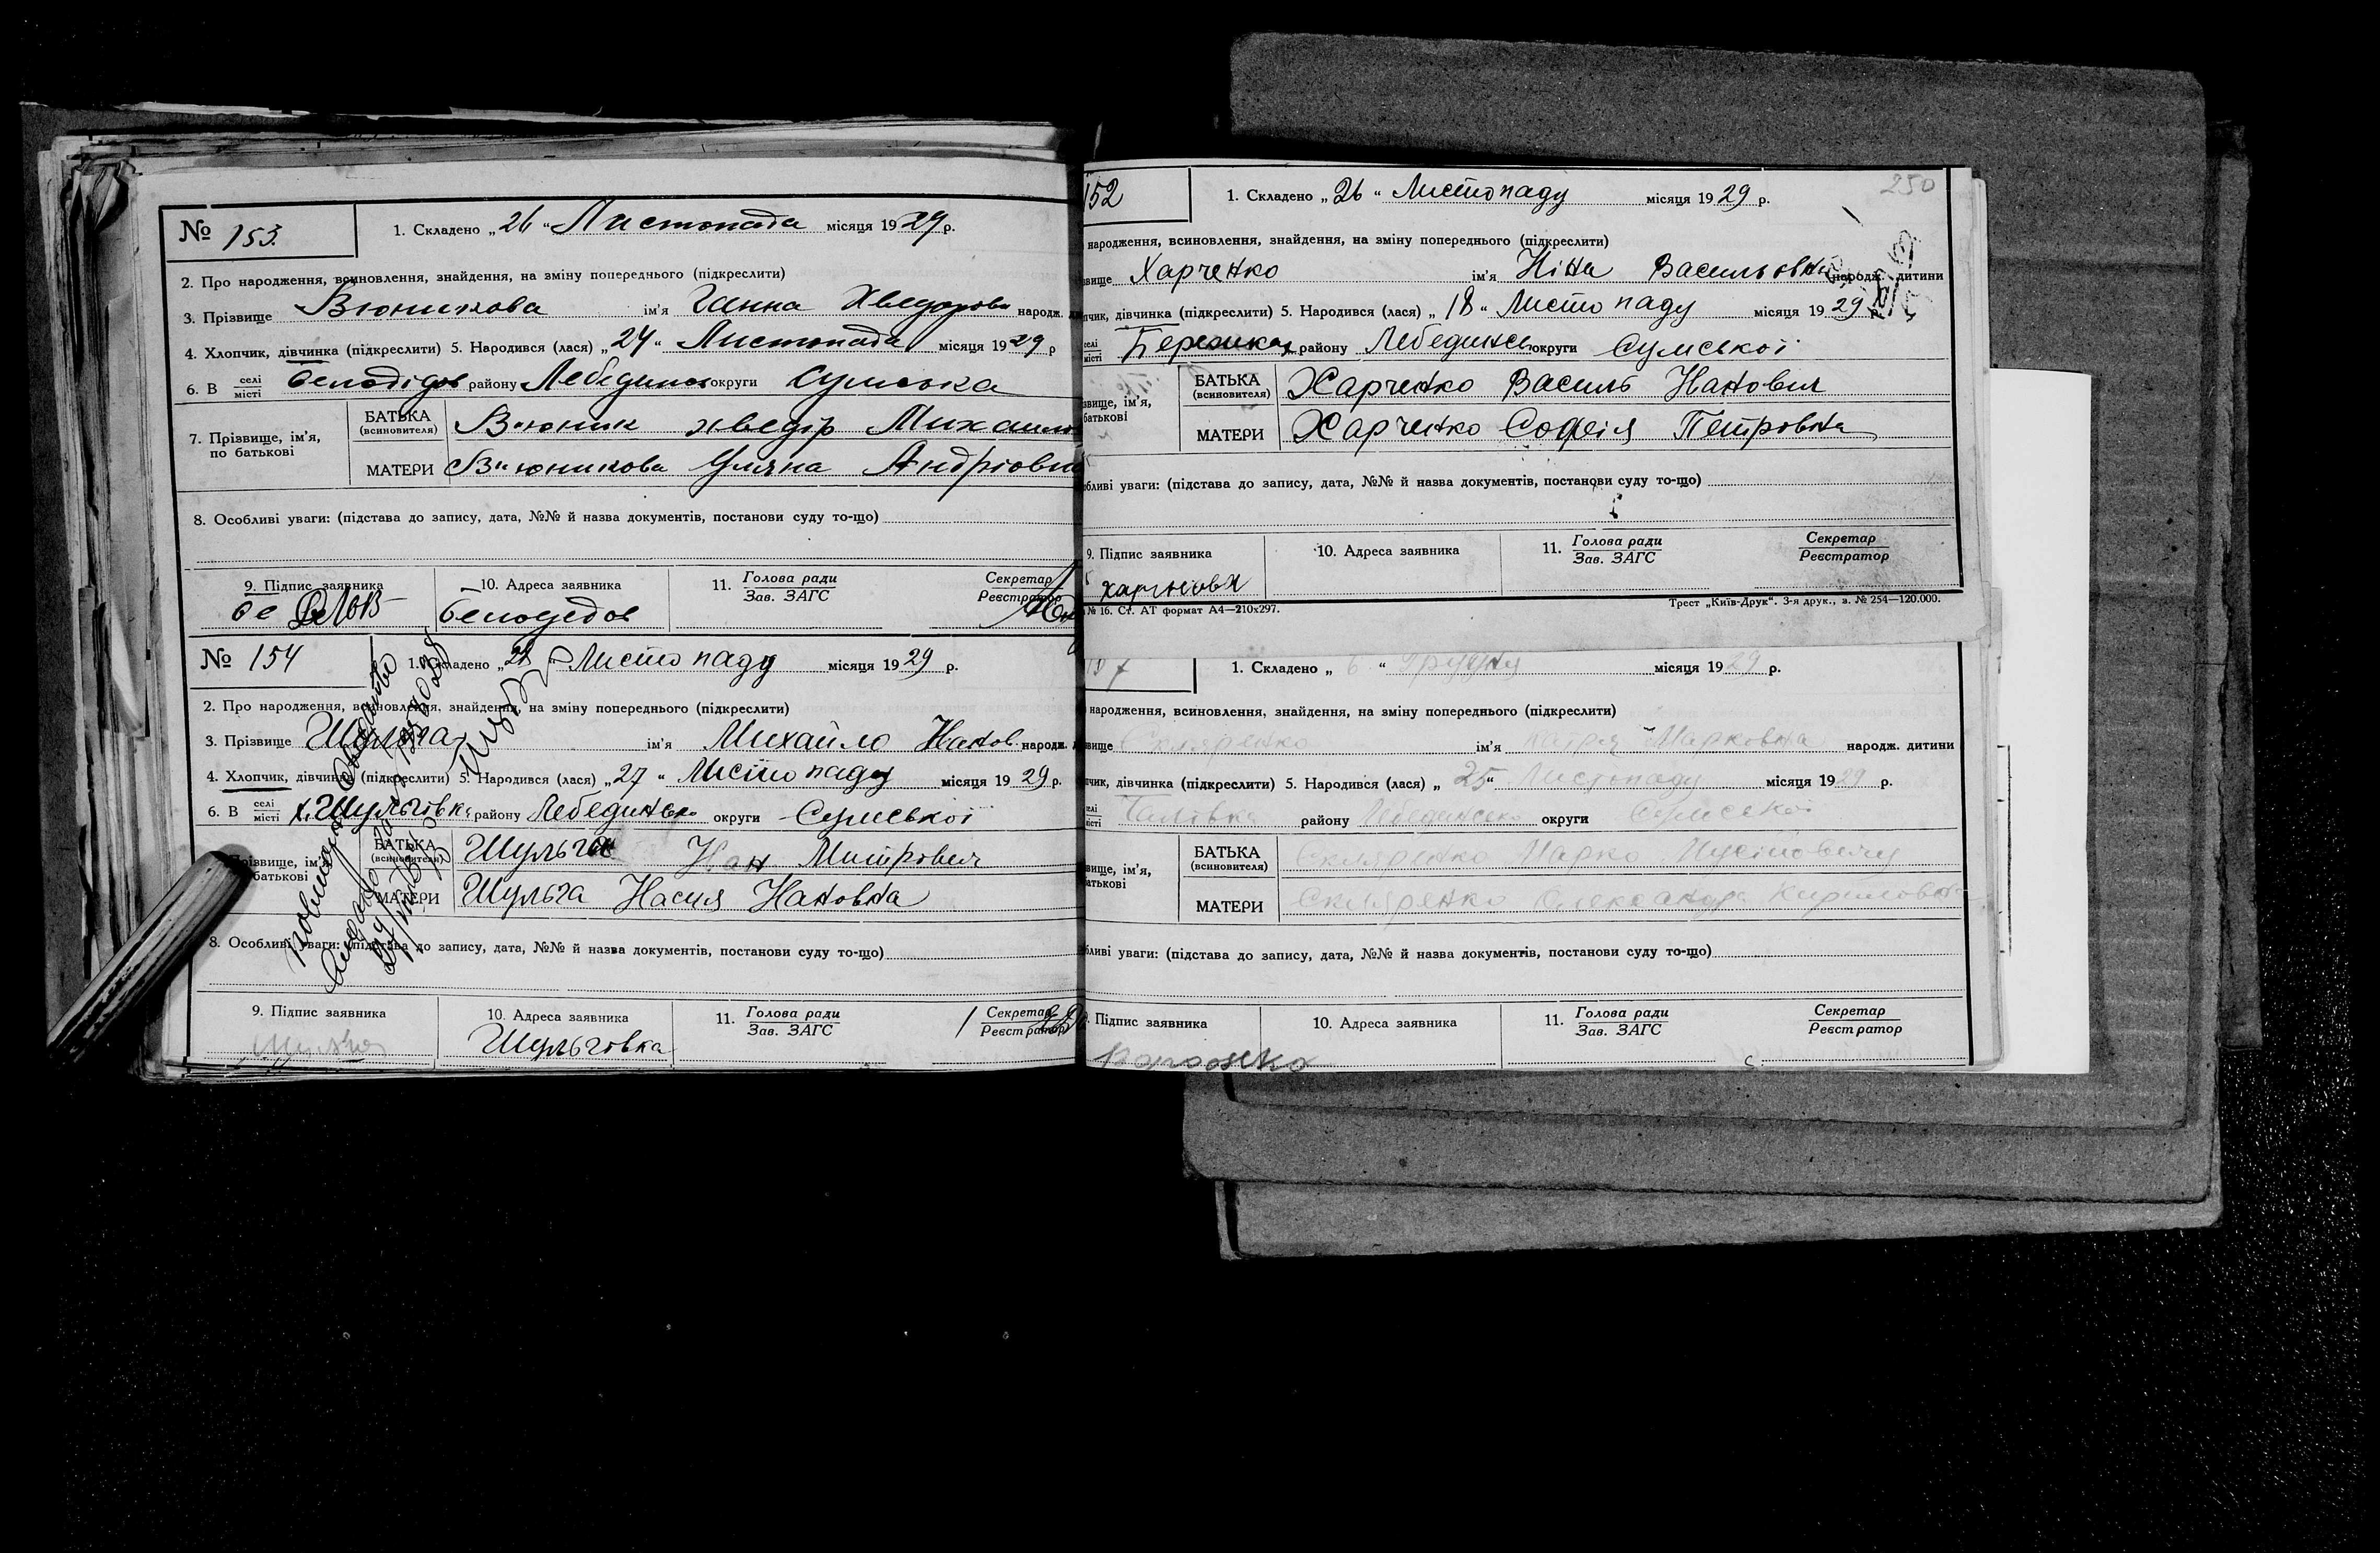 № 153.
1. Складено „ 26 “ Листопада місяця 19 29 р.
2. Про народження, всиновлення, знайдення, на зміну попереднього (підкреслити)
3. Прізвище Вюникова ім'я Ганна Хведорови народж.
4. Хлопчик, дівчинка (підкреслити) 5. Народився (лася) „ 24 “ Листопада місяця 19 29 р
6. В селі місті району Лебединсь округи Сумська
7. Прізвище, ім'я, по батькові
БАТЬКА (всиновителя) Вьюник хведір Михаило
МАТЕРИ Вьюникова Уляна Андріовн
8. Особливі уваги: (підстава до запису, дата, №№ й назва документів, постанови суду то-що)
9. Підпис заявника
10. Адреса заявника
11. Голова ради Зав. ЗАГС
Секретар Реєстратор
№ 154
1. Складено „ 28 Листопаду місяця 19 29 р.
2. Про народження, всиновлення, знайдення, на зміну попереднього (підкреслити)
3. Прізвище Шульга ім'я Михайло Іванов. народж.
4. Хлопчик, дівчинка (підкреслити) 5. Народився (лася) „ 27 “ Листопаду місяця 19 29 р.
6. В селі місті х. Шульгівка району Лебединсько округи Сумської
Прізвище, ім'я батькові
БАТЬКА (всиновителя) Шульга Іван Митрович
МАТЕРИ Шульга Насия Івановна
8. Особливі уваги: (підстава до запису, дата, №№ й назва документів, постанови суду то-що)
9. Підпис заявника
10. Адреса заявника
Шульговка
11. Голова ради Зав. ЗАГС
Секретар Реєстратор
152
1. Складено „ 26 “ Листопаду місяця 19 29 р.
250
народження, всиновлення, знайдення, на зміну попереднього (підкреслити)
звище Харченко ім'я Ніна Васильовна народж. дитини
пчик, дівчинка (підкреслити) 5. Народився (лася) „ 18 “ Листопаду місяця 19 29
селі місті району Лебединсь округи Сумської
звище, ім'я, батькові
БАТЬКА (всиновителя) Харченко Василь Іванович
МАТЕРИ Харченко Софія Петровна
бливі уваги: (підстава до запису, дата, №№ й назва документів, постанови суду то-що)
9. Підпис заявника
10. Адреса заявника
11. Голова ради Зав. ЗАГС
Секретар Реєстратор
№ 16. Ст. АТ формат А4—210х297.
Трест „Київ-Друк“. 3-я друк., з. № 254—120.000.
1. Складено „ 6 “ Грудня місяця 19 29 р.
народження, всиновлення, знайдення, на зміну попереднього (підкреслити)
вище Скляренко ім'я Марковна народж. дитини
пчик, дівчинка (підкреслити) 5. Народився (лася) „ 25 “ Листопаду місяця 19 29 р.
селі місті району Лебединсько округи Сумської
вище, ім'я, атькові
БАТЬКА (всиновителя) Скляренко Марко
МАТЕРИ Скляренко Олександра Кириловна
бливі уваги: (підстава до запису, дата, №№ й назва документів, постанови суду то-що)
Підпис заявника
10. Адреса заявника
11. Голова ради Зав. ЗАГС
Секретар Реєстратор